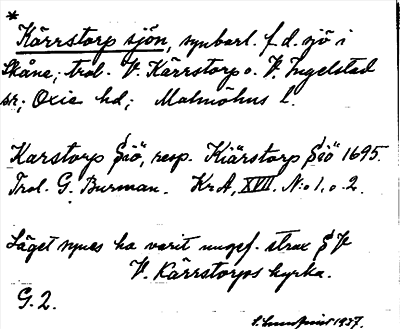 *
Kärrstorp sjön, synbarl. f.d. sjö i
Skåne; trol. V. Kärrstorp o. V. Ingelstad
sn; Oxie hd; Malmöhus l.
Karstorp Siö, resp. Kiärstorp Siö 1695.
Trol. G. Burman. KrA, XVII. N:o 1, o. 2.
Läget synes ha varit ungef. strax S V
V. Kärrstorps kyrka.
G. 2.
1937.